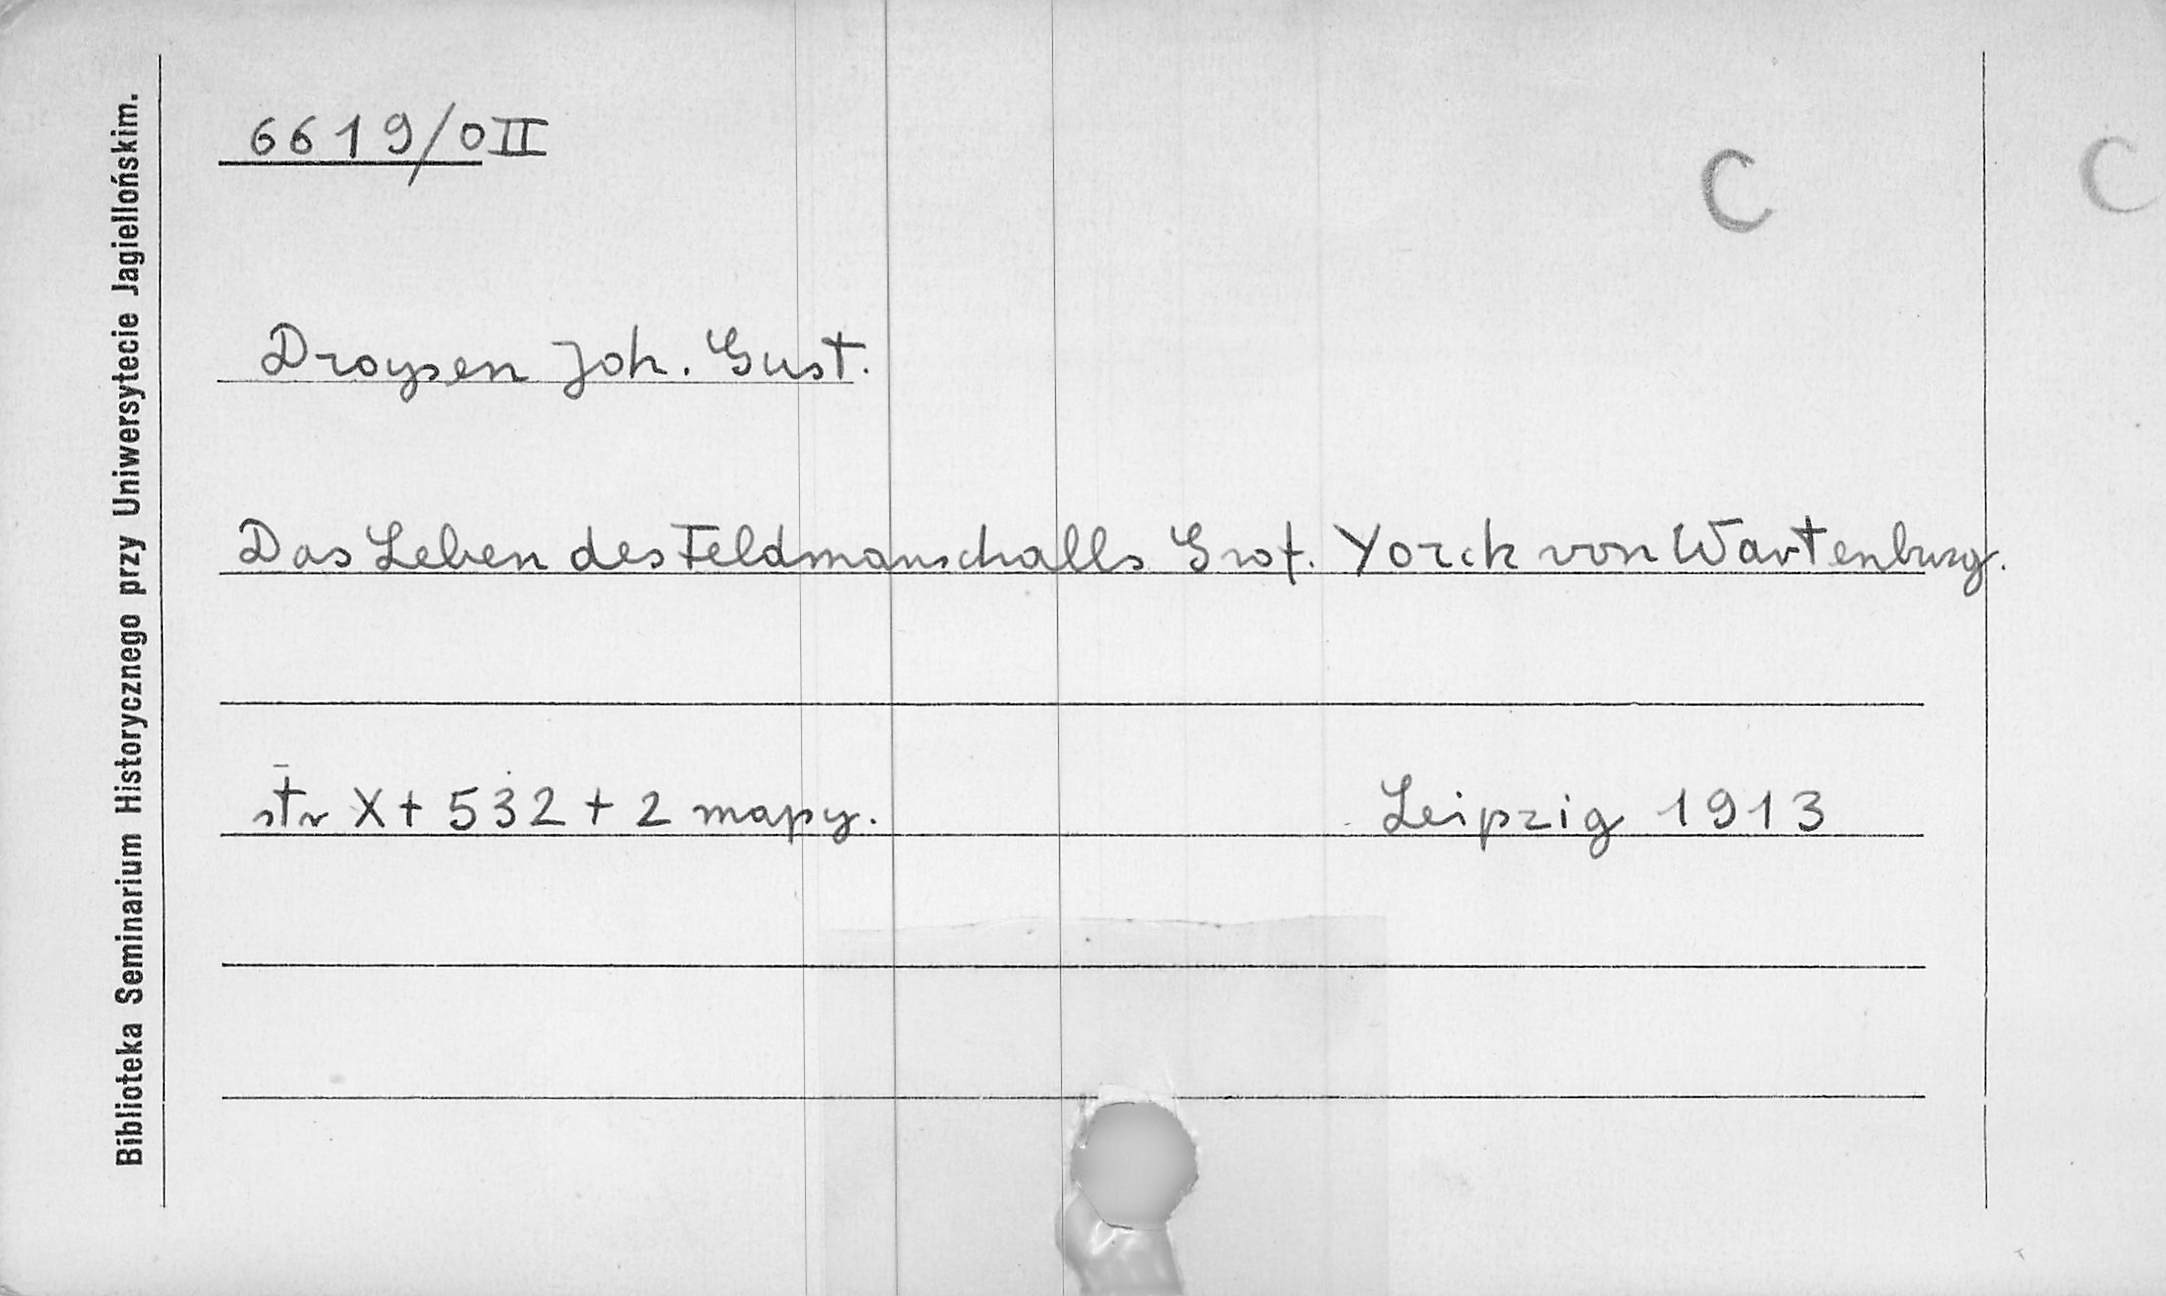 6619/0II
C
C
Droysen Joh. Gust.
Das Leben des Feldmanschalls Graf. Yorck von Wartenburg.
str X + 532 + 2 mapy.
Leipzig 1913
Biblioteka Seminarium Historycznego przy Uniwersytecie Jagiellońskim.